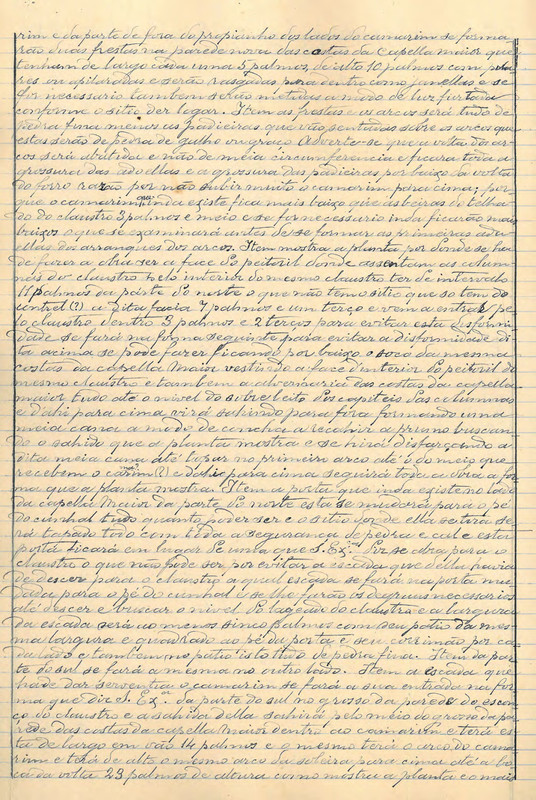 rim e da parte de fora do propianho dos lados do camarim se forma
rão duas frestas na parede nova das costas da Capella Maior que
tenham de largo cada uma 5 palmos, de alto 10 palmos com pila
res ou apilarodas e serão rasgadas para dentro como janellas e se
for necessario tambem serão metidas a modo de luz furtada
conforme o sitio der logar. Item as frestas e os arcos será tudo de
pedra fina menos as padieiras que vão sentadas sobre os arcos que
estas serão de pedra de galho ou graço. Adverte-se que a volta dos ar
cos será abatida e não de meia circumferencia e ficará toda a
grossura das aduellas e a grossura das padieiras por baixo da volta
do forro razão por não subir muito o camarim para cima; por
que o camarim que inda existe fica mais baixo que as beiras do telha
do do claustro 3 palmos e meio e se for necessario inda ficarão mais
baixos o que se examinará antes de se formar as primeiras adu
ellas dos arranques dos arcos. Item mostra a planta por donde se ha
de fazer a obra ser a face do peitoril donde assentam as colum
nas do claustro pelo interior do mesmo claustro ter de intervalo
11 palmos da parte do norte o que não tem o sitio que so tem do
contrel (?) a dita facia 7 palmos e um terço e vem a entrar pe
lo claustro dentro 3 palmos e 2 terços para evitar esta disformi
dade se fará na forma seguinte para evitar a disformidade di
ta acima se pode fazer ficando por baixo o soco da mesma
costas da capella Maior vestindo a face d'interior do peitoril do
mesmo claustro e tambem a alvernaria das costas da capella
maior tudo até o nivel do sobreleito dos capiteis das columnas
e d'ahi para cima virá sahindo para fora formando uma
meia cana a modo de concha a recolhir a prumo buscan
do o sahido que a planta mostra e se hirá disfarçando a
dita meia cana até topar no primeiro arco até o do meio que
recebem o carim (?) e d'ahi para cima seguirá toda a obra a for
ma que a planta mostra. Item a porta que inda existe no lado
da capella Maior da parte do norte esta se mudará para o pé
do cunhal tudo quanto poder ser e o sitio von de ella se tira se
rá tapado todo com toda a segurança de pedra e cal e esta
porta ficará em lugar de uma que S. Ex.ª Rv. se abra para o
claustro o que não pode ser por evitar a escada que della havia
de descer para o claustro a qual escada se fará na porta mu
dada para o pé do cunhal e se lhe farão os degraus necessarios
até descer e buscar o nivel do lageado do claustro e a largura
da escada será ao menos sinco palmos com seu patio da mes
ma largura e quadrado ao pé da porta e seu corrimão por ca
da lado e tambem no patio isto tudo de pedra fina. Item da par
te do sul se fará a mesma no outro lado. Item a escada que
hade dar serventia o camarim se fará a sua entrada na for
ma que dice S. Ex. da parte do sul no grosso da parede do escon
ço do claustro e a sahida della sahirá pelo meio do grosso da pa
rede das costas da capella Maior dentro ao camarim e terá es
ta de largo em vão 14 palmos e o mesmo terá o arco do cama
rim e terá de alto o mesmo arco da soleira para cima até a bo
ca da volta 23 palmos de altura como mostra a planta e mais